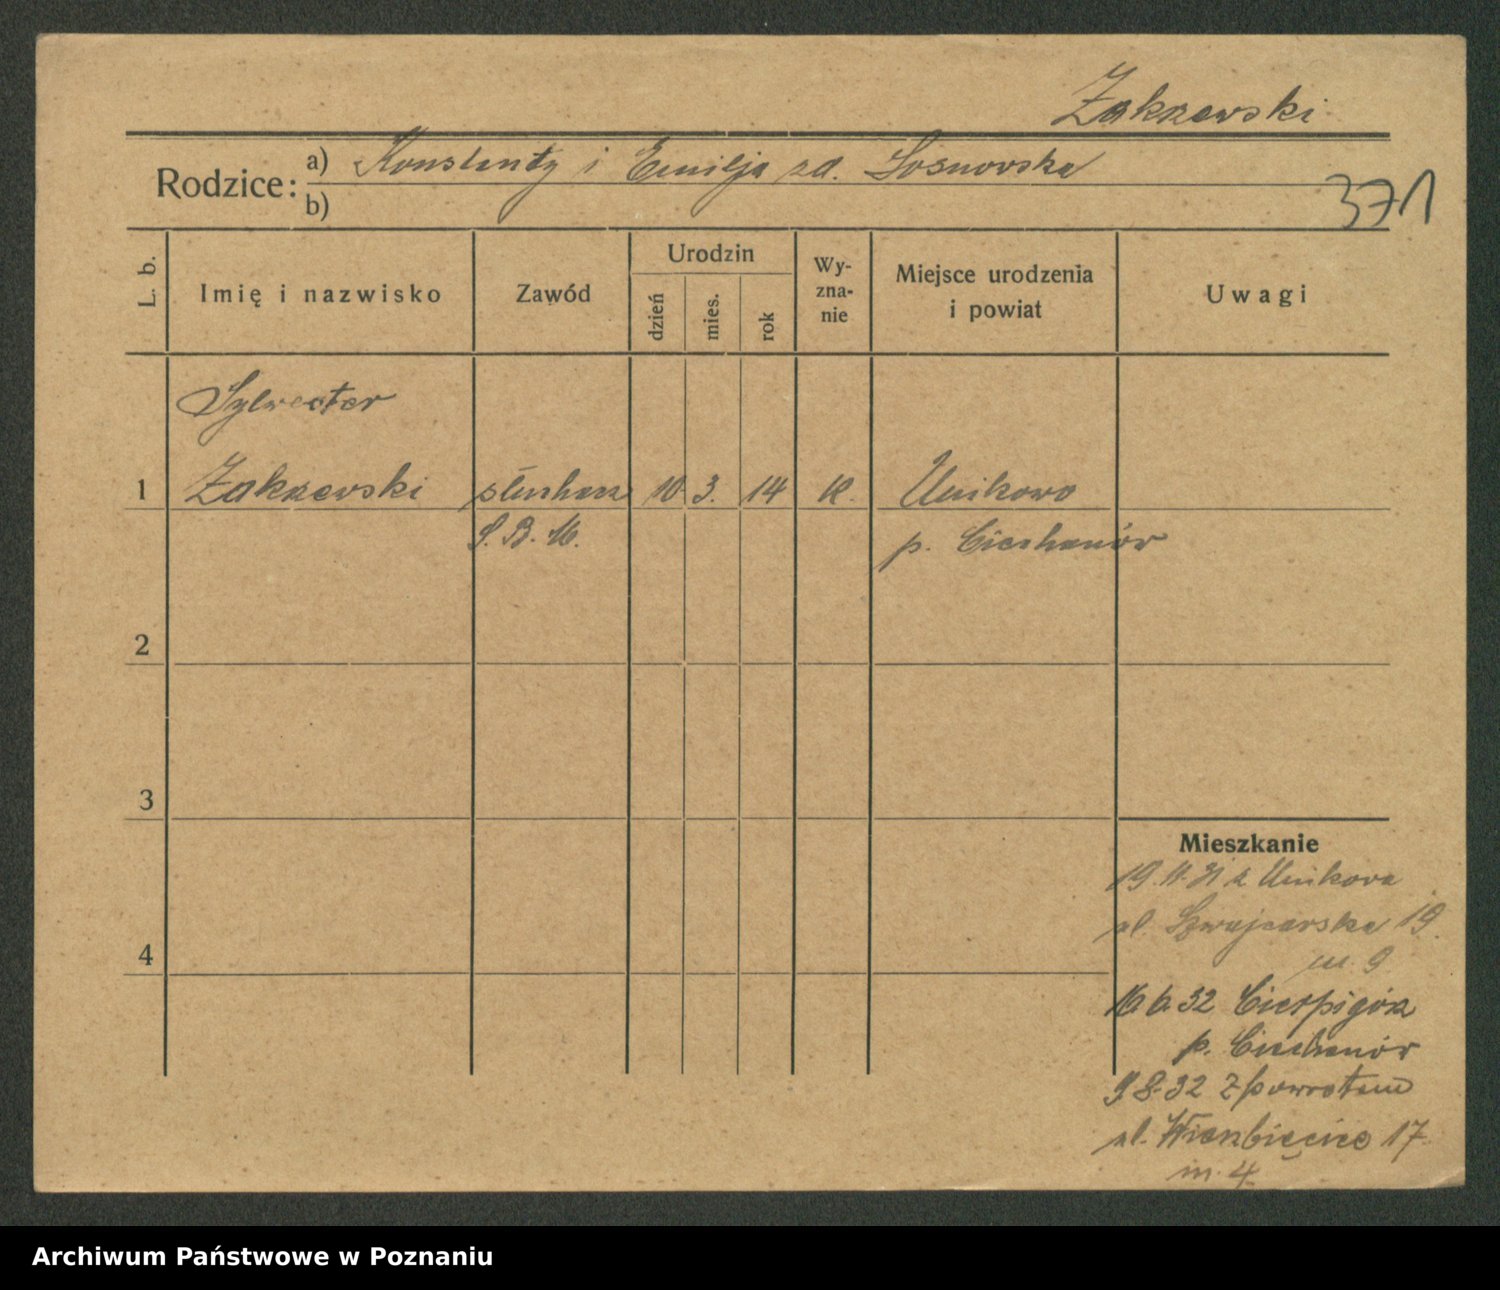 Zakrzewski
Rodzice: a) Konstanty i Emilja zd. Sosnowska
b)
371
L. b.
Imię i nazwisko
Zawód
Urodzin
dzień
mies.
rok
Wy-
zna-
nie
Miejsce urodzenia
i powiat
Uwagi
Sylwester
1 Zakrzewski słuchacz 10. 3. 14 K. Unikowo
S. B. M. p. Ciechanów
2
3
4
Mieszkanie
19.11.31 z Unikowa
ul. Szwajcarska 19
m. 9
16 6 32 Cierpigórz
p. Ciechanów
9.8.32 z powrotem
ul. Wierzbięcice 17
m. 4
Archiwum Państwowe w Poznaniu